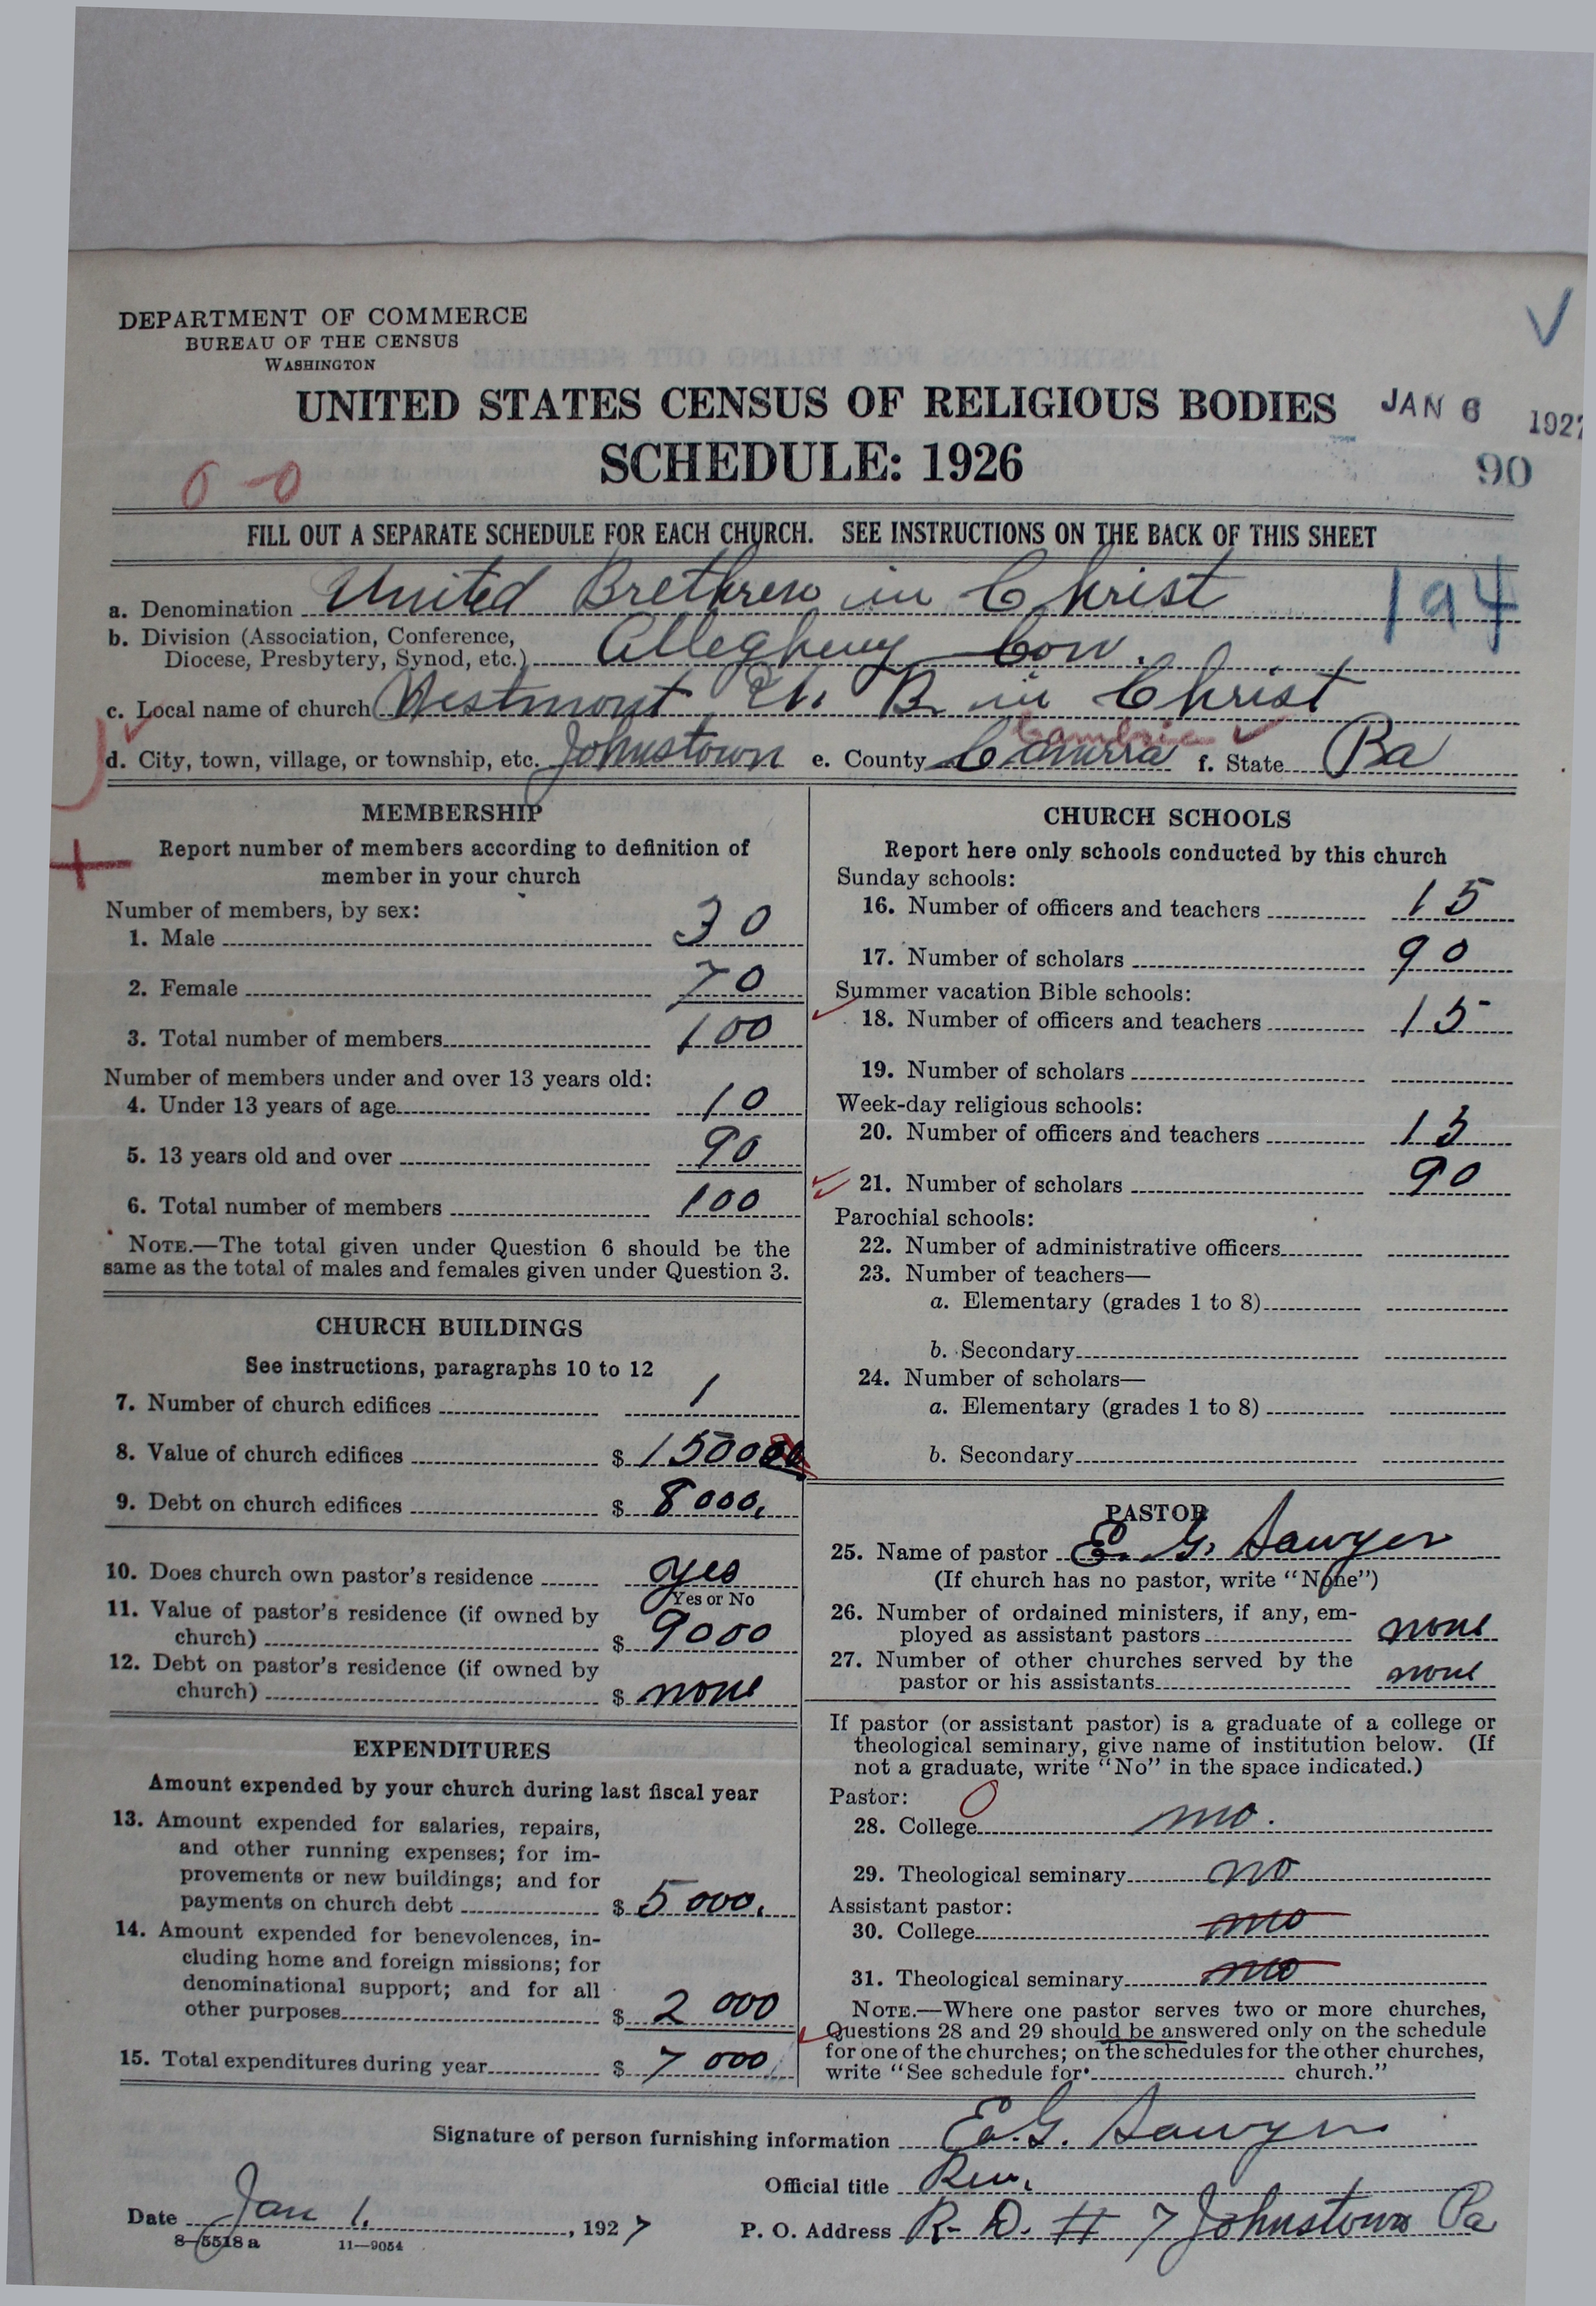 DEPARTMENT OF COMMERCE
BUREAU OF THE CENSUS
WASHINGTON
UNITED STATES CENSUS OF RELIGIOUS BODIES
JAN 6 1927
SCHEDULE: 1926
90
0-0
FILL OUT A SEPARATE SCHEDULE FOR EACH CHURCH. SEE INSTRUCTIONS ON THE BACK OF THIS SHEET
a. Denomination United Brethren in Christ
194
b. Division (Association, Conference,
Diocese, Presbytery, Synod, etc.) Allegheny Con.
c. Local name of church Westmont U. B. in Christ
Cambria
d. City, town, village, or township, etc. Johnstown e. County f. State Pa
MEMBERSHIP
Report number of members according to definition of
member in your church
Number of members, by sex:
1. Male 30
2. Female 70
3. Total number of members 100
Number of members under and over 13 years old:
4. Under 13 years of age 10
5. 13 years old and over 90
6. Total number of members 100
NOTE.—The total given under Question 6 should be the
same as the total of males and females given under Question 3.
CHURCH BUILDINGS
See instructions, paragraphs 10 to 12
7. Number of church edifices 1
8. Value of church edifices $ 15000
9. Debt on church edifices $ 8000.
10. Does church own pastor's residence yes
Yes or No
11. Value of pastor's residence (if owned by
church) $ 9000
12. Debt on pastor's residence (if owned by
church) $ none
EXPENDITURES
Amount expended by your church during last fiscal year
13. Amount expended for salaries, repairs,
and other running expenses; for im-
provements or new buildings; and for
payments on church debt $ 5000.
14. Amount expended for benevolences, in-
cluding home and foreign missions; for
denominational support; and for all
other purposes $ 2000
15. Total expenditures during year $ 7000
CHURCH SCHOOLS
Report here only schools conducted by this church
Sunday schools:
16. Number of officers and teachers 15
17. Number of scholars 90
Summer vacation Bible schools:
18. Number of officers and teachers 15
19. Number of scholars
Week-day religious schools:
20. Number of officers and teachers 15
21. Number of scholars 90
Parochial schools:
22. Number of administrative officers
23. Number of teachers—
a. Elementary (grades 1 to 8)
b. Secondary
24. Number of scholars—
a. Elementary (grades 1 to 8)
b. Secondary
PASTOR
25. Name of pastor E. G. Sawyer
(If church has no pastor, write "None")
26. Number of ordained ministers, if any, em-
ployed as assistant pastors none
27. Number of other churches served by the
pastor or his assistants none
If pastor (or assistant pastor) is a graduate of a college or
theological seminary, give name of institution below. (If
not a graduate, write "No" in the space indicated.)
Pastor: 0
28. College no.
29. Theological seminary no
Assistant pastor:
30. College no
31. Theological seminary no
NOTE.—Where one pastor serves two or more churches,
Questions 28 and 29 should be answered only on the schedule
for one of the churches; on the schedules for the other churches,
write "See schedule for church."
Signature of person furnishing information E. G. Sawyer
Official title Rev.
Date Jan 1. , 1927
P. O. Address R. D. # 7 Johnstown Pa
8—5518 a 11—9054